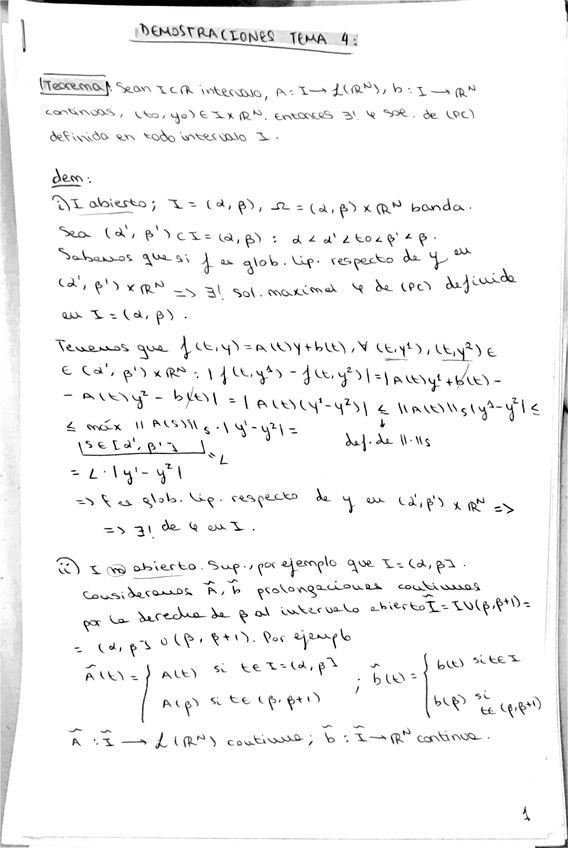 DEMOSTRACIONES TEMA 4:
Teorema: Sean I⊂ℝ intervalo, A: I→ℒ(ℝᴺ), b: I→ℝᴺ
continuas, (t₀, y₀) ∈ I×ℝᴺ. Entonces ∃! φ sol. de (PC)
definida en todo intervalo I.
dem:
i) I abierto; I = (α, β), Ω = (α, β) × ℝᴺ banda.
Sea (α', β') ⊂ I = (α, β) : α < α' < t₀ < β' < β.
Sabemos que si f es glob. lip. respecto de y en
(α', β') × ℝᴺ => ∃! sol. maximal φ de (PC) definida
en I = (α, β).
Tenemos que f(t,y) = A(t)y + b(t), ∀ (t,y¹), (t,y²) ∈
∈ (α', β') × ℝᴺ : |f(t,y¹) - f(t,y²)| = |A(t)y¹ + b(t) -
- A(t)y² - b(t)| = |A(t)(y¹-y²)| ≤ ||A(t)||s |y¹-y²| ≤
≤ máx ||A(s)||s · |y¹-y²| =
s∈[α', β'] = L
def. de ||·||s
= L · |y¹-y²|
=> f es glob. lip. respecto de y en (α', β') × ℝᴺ =>
=> ∃! de φ en I.
ii) I no abierto. Sup., por ejemplo que I = (α, β].
Consideramos Ã, b̃ prolongaciones continuas
por la derecha de β al intervalo abierto Ĩ = I∪(β, β+1) =
= (α, β] ∪ (β, β+1). Por ejemplo
Ã(t) = { A(t) si t∈I=(α, β] ; b̃(t) = { b(t) si t∈I
A(β) si t∈(β, β+1) b(β) si t∈(β, β+1)
Ã : Ĩ → ℒ(ℝᴺ) continua; b̃ : Ĩ → ℝᴺ continua.
1